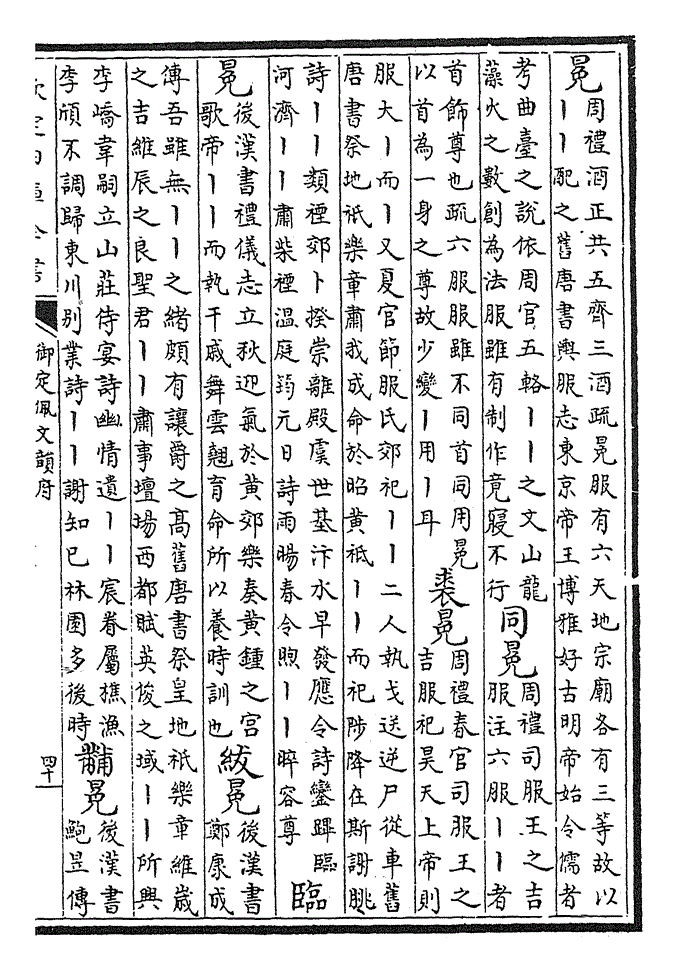 冕
周禮酒正共五齊三酒疏冕服有六天地宗廟各有三等故以
丨丨配之舊唐書輿服志東京帝王博雅好古明帝始令儒者
考曲臺之說依周官五輅丨丨之文山龍
藻火之數創為法服雖有制作竟寢不行
同冕
周禮司服王之吉
服注六服丨丨者
首飾尊也疏六服服雖不同首同用冕
以首為一身之尊故少變丨用丨耳
裘冕
周禮春官司服王之
吉服祀昊天上帝則
服大丨而丨又夏官節服氏郊祀丨丨二人執戈送逆尸從車舊
唐書祭地祇樂章肅我成命於昭黃祇丨丨而祀陟降在斯謝朓
詩丨丨類禋郊卜揆崇離殿虞世基汴水早發應令詩鑾蹕臨
河濟丨丨肅柴禋溫庭筠元日詩雨暘春令煦丨丨晬容尊
臨
冕
後漢書禮儀志立秋迎氣於黃郊樂奏黃鍾之宮
歌帝丨丨而執干戚舞雲翹育命所以養時訓也
紱冕
後漢書
鄭康成
傳吾雖無丨丨之緒頗有讓爵之高舊唐書祭皇地祇樂章維歲
之吉維辰之良聖君丨丨肅事壇場西都賦英俊之域丨丨所興
李嶠韋嗣立山莊侍宴詩幽情遺丨丨宸眷屬樵漁
李頎不調歸東川別業詩丨丨謝知已林園多後時
黼冕
後漢書
鮑昱傳
欽定四庫全書
御定佩文韻府
四十一